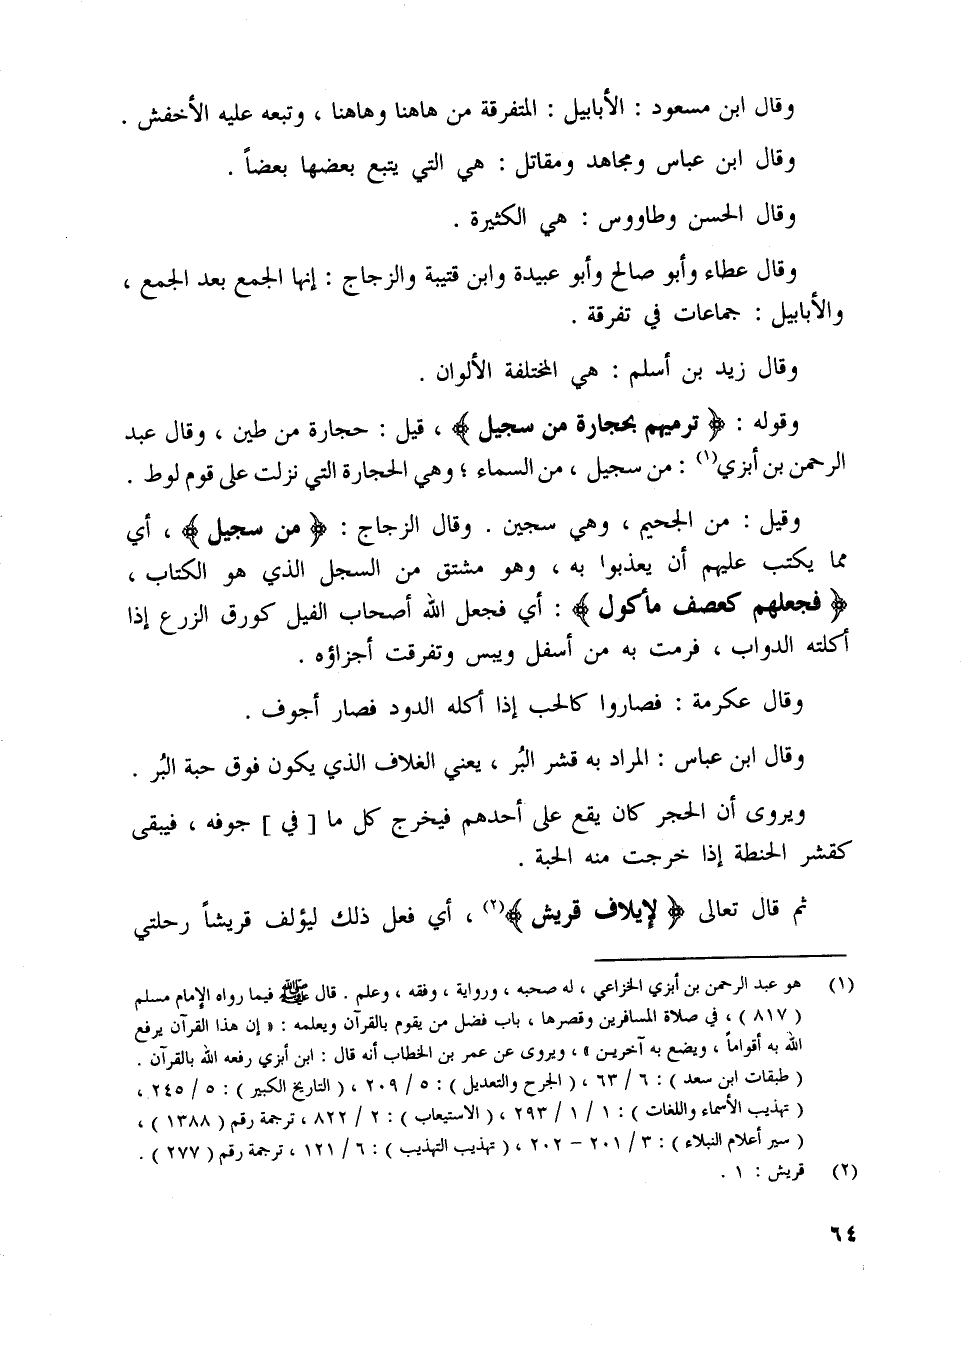 وقال ابن مسعود : الأبابيل : المتفرقة من هاهنا وهاهنا ، وتبعه عليه الأخفش .
وقال ابن عباس ومجاهد ومقاتل : هي التي يتبع بعضها بعضاً .
وقال الحسن وطاووس : هي الكثيرة .
وقال عطاء وأبو صالح وأبو عبيدة وابن قتيبة والزجاج : إنها الجمع بعد الجمع ،
والأبابيل : جماعات في تفرقة .
وقال زيد بن أسلم : هي المختلفة الألوان .
وقوله : ﴿ ترميهم بحجارة من سجيل ﴾ ، قيل : حجارة من طين ، وقال عبد
الرحمن بن أبزي(١) : من سجيل ، من السماء ؛ وهي الحجارة التي نزلت على قوم لوط .
وقيل : من الجحيم ، وهي سجين . وقال الزجاج : ﴿ من سجيل ﴾ ، أي
مما يكتب عليهم أن يعذبوا به ، وهو مشتق من السجل الذي هو الكتاب ،
﴿ فجعلهم كعصف مأكول ﴾ : أي فجعل الله أصحاب الفيل كورق الزرع إذا
أكلته الدواب ، فرمت به من أسفل ويبس وتفرقت أجزاؤه .
وقال عكرمة : فصاروا كالحب إذا أكله الدود فصار أجوف .
وقال ابن عباس : المراد به قشر البُر ، يعني الغلاف الذي يكون فوق حبة البُر .
ويروى أن الحجر كان يقع على أحدهم فيخرج كل ما [ في ] جوفه ، فيبقى
كقشر الحنطة إذا خرجت منه الحبة .
ثم قال تعالى ﴿ لإيلاف قريش ﴾(٢) ، أي فعل ذلك ليؤلف قريشاً رحلتي
(١) هو عبد الرحمن بن أبزي الخزاعي ، له صحبه ، ورواية ، وفقه ، وعلم . قال ﷺ فيما رواه الإمام مسلم
( ٨١٧ ) ، في صلاة المسافرين وقصرها ، باب فضل من يقوم بالقرآن ويعلمه : « إن هذا القرآن يرفع
الله به أقواماً ، ويضع به آخرين » ، ويروى عن عمر بن الخطاب أنه قال : ابن أبزي رفعه الله بالقرآن .
( طبقات ابن سعد ) : ٦ / ٦٣ ، ( الجرح والتعديل ) : ٥ / ٢٠٩ ، ( التاريخ الكبير ) : ٥ / ٢٤٥ ،
( تهذيب الأسماء واللغات ) : ١ / ١ / ٢٩٣ ، ( الاستيعاب ) : ٢ / ٨٢٢ ، ترجمة رقم ( ١٣٨٨ ) ،
( سير أعلام النبلاء ) : ٣ / ٢٠١ – ٢٠٢ ، ( تهذيب التهذيب ) : ٦ / ١٢١ ، ترجمة رقم ( ٢٧٧ ) .
(٢) قريش : ١ .
٦٤